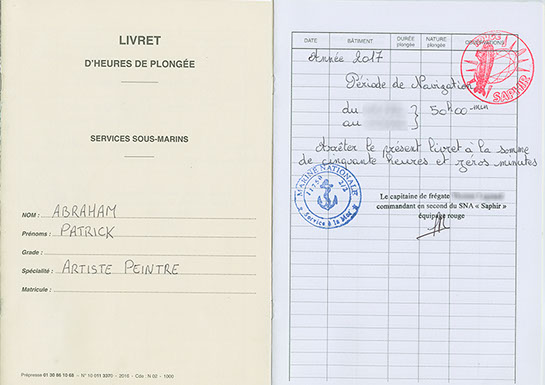 LIVRET
D'HEURES DE PLONGÉE
SERVICES SOUS-MARINS
NOM : ABRAHAM
Prénoms : PATRICK
Grade :
Spécialité : ARTISTE PEINTRE
Matricule :
DATE BÂTIMENT DURÉE plongée NATURE plongée OBSERVATIONS
Année 2017
Période de Navigation
du
au
50h00 min
Arrêter le présent livret à la somme
de cinquante heures et zéros minutes
SAPHIR
MARINE NATIONALE
Service à la Mer
Le capitaine de frégate
commandant en second du SNA « Saphir »
équipage rouge